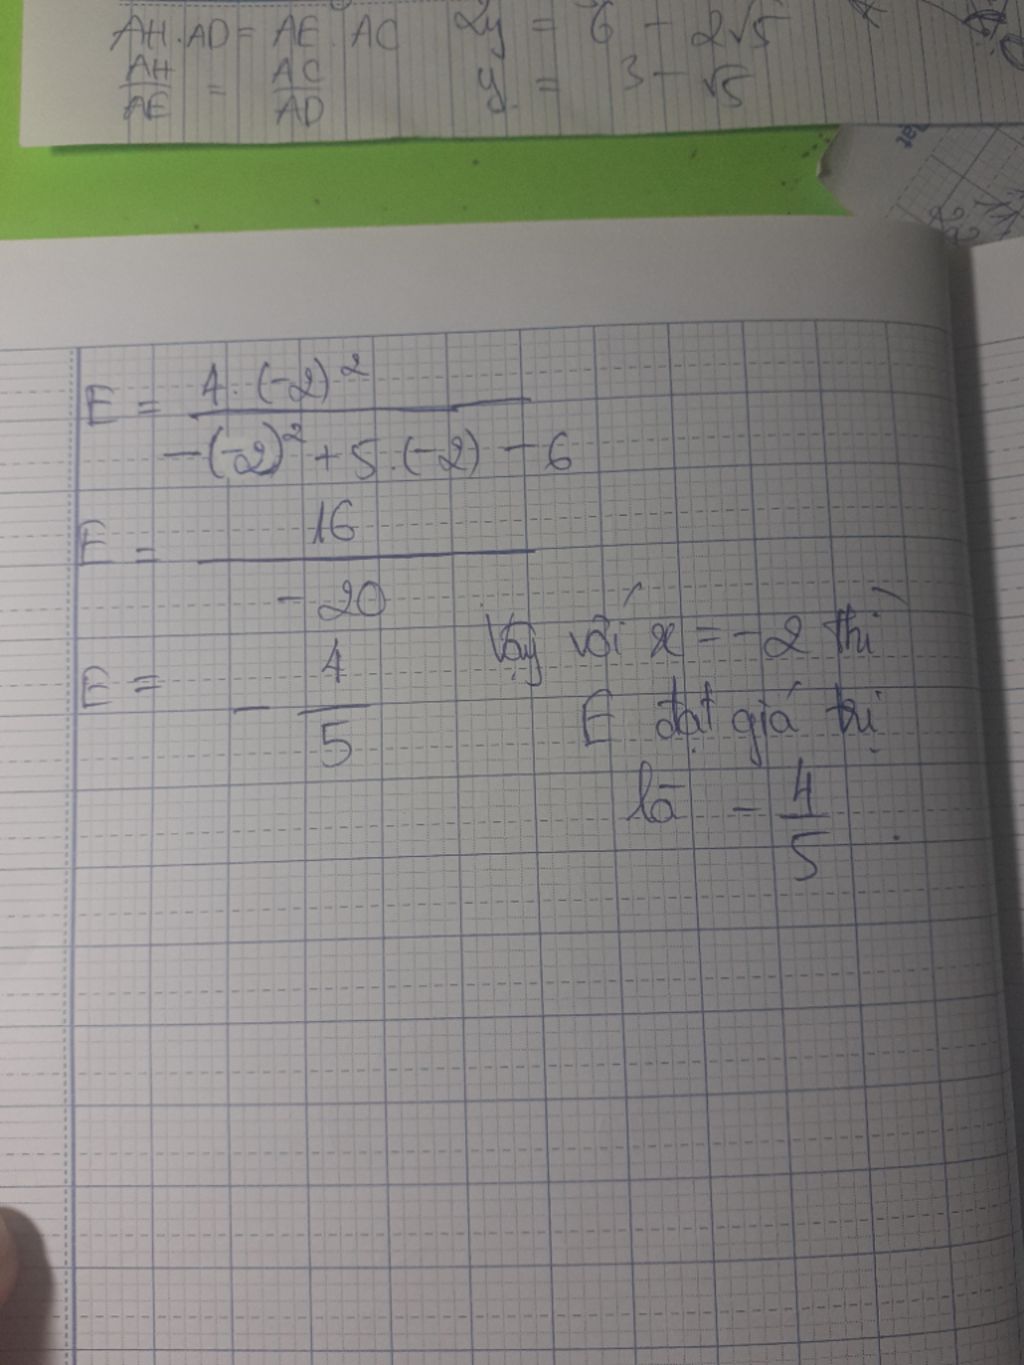 AH.AD = AE.AC 2y = 6 - 2√5
AH/AE = AC/AD y = 3 - √5
E = 4.(-2)²/(-(-2)² + 5.(-2) - 6)
E = 16/-20
E = -4/5
Vậy với x = -2 thì
E đạt giá trị
là -4/5.